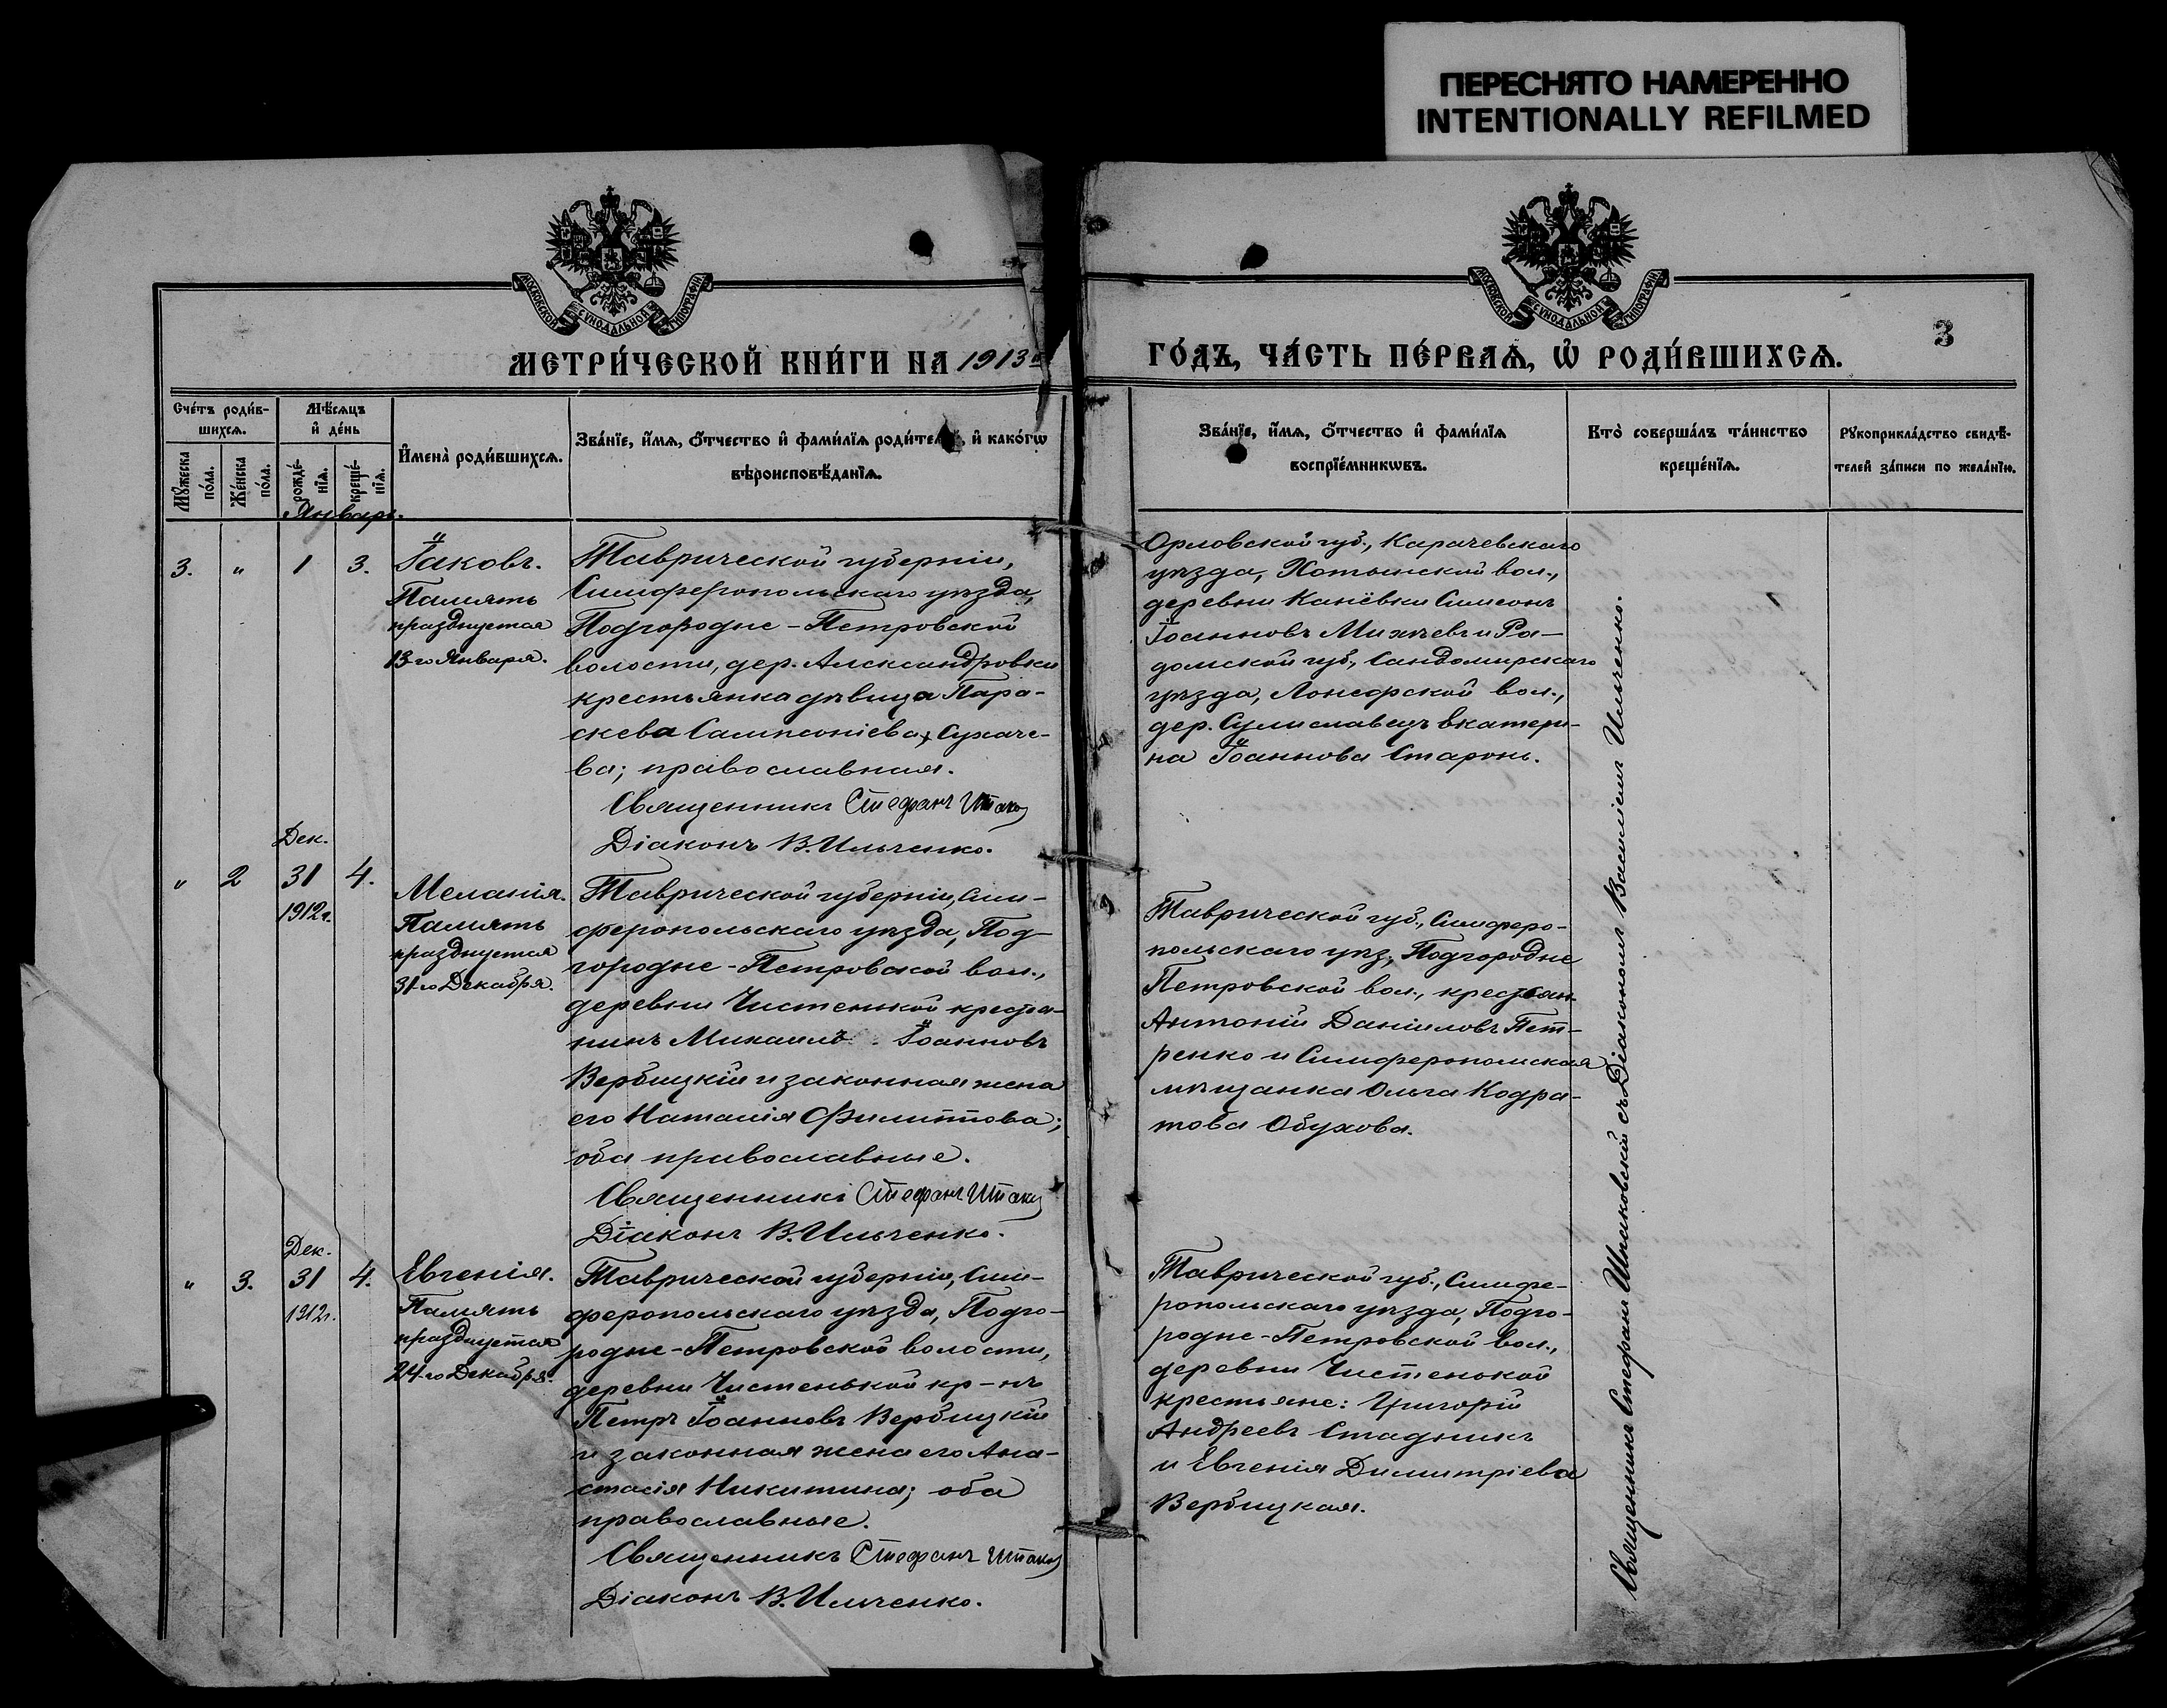 ПЕРЕСНЯТО НАМЕРЕННО
INTENTIONALLY REFILMED
МОСКОВСКОЙ СѴНОДАЛЬНОЙ ТИПОГРАФІИ
МОСКОВСКОЙ СѴНОДАЛЬНОЙ ТИПОГРАФІИ
3
МЕТРИ́ЧЕСКОЙ КНИ́ГИ НА 1913
ГО́ДЪ, ЧА́СТЬ ПЕ́РВАѦ, Ѡ҆ РОДИ́ВШИХСѦ.
Сче́тъ роди́в-
шихсѧ.
Мꙋ́жеска
по́ла.
Же́нска
по́ла.
Мѣ́сѧцъ
и҆ де́нь
рожде́-
нїѧ.
креще́-
нїѧ.
И҆мена̀ роди́вшихсѧ.
Зва́нїе, и҆́мѧ, ѻ҆́тчество и҆ фами́лїѧ роди́телей, и҆ како́гѡ
вѣроисповѣ́данїѧ.
Зва́нїе, и҆́мѧ, ѻ҆́тчество и҆ фами́лїѧ
воспрїе́мникѡвъ.
Кто̀ соверша́лъ та́инство
креще́нїѧ.
Рꙋкоприкла́дство свидѣ́-
телей за́писи по жела́нїю.
Январь.
3. " 1 3.
Іаковъ.
Память
празднуется
13-го Января.
Таврической губерніи,
Симферопольскаго уѣзда,
Подгородне-Петровской
волости, дер. Александровки
крестьянка дѣвица Пара-
скева Сампсоніева, Сухаче-
ва; православная.
Священникъ Стефанъ
Діаконъ В. Ильченко.
Орловской губ., Карачевскаго
уѣзда, Хотынской вол.,
деревни Канёвки Симеонъ
Іоанновъ Михѣевъ и Ра-
домской губ., Сандомирскаго
уѣзда, вол.,
дер. Сулиславецъ Екатери-
на Іоаннова Старонь.
Дек.
" 2 31 4.
1912г.
Меланія.
Память
празднуется
31-го Декабря.
Таврической губерніи, Сим-
феропольскаго уѣзда, Под-
городне-Петровской вол.,
деревни Чистенькой крестья-
нинъ Михаилъ Іоанновъ
Вербицкій и законная жена
его Наталія Филиппова;
оба православные.
Священникъ Стефанъ
Діаконъ В. Ильченко.
Таврической губ., Симферо-
польскаго уѣз., Подгородне
Петровской вол., крестьян.
Антоній Даніиловъ Пет-
ренко и Симферопольская
мѣщанка Ольга Кодра-
това Обухова.
Дек.
" 3. 31 4.
1912г.
Евгенія.
Память
празднуется
24-го Декабря.
Таврической губерніи, Сим-
феропольскаго уѣзда, Подго-
родне-Петровской волости,
деревни Чистенькой кр-нъ
Петръ Іоанновъ Вербицкій
и законная жена его Ана-
стасія Никитина; оба
православные.
Священникъ Стефанъ
Діаконъ В. Ильченко.
Таврической губ., Симфе-
ропольскаго уѣзда, Подго-
родне-Петровской вол.,
деревни Чистенькой
крестьяне: Григорій
Андреевъ Стадникъ
и Евгенія Димитріева
Вербицкая.
Священникъ Стефанъ Шпаковскій съ Діакономъ Василіемъ Ильченко.